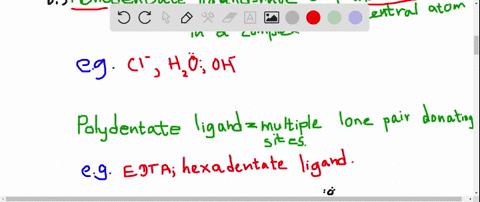 entral atom
in a complex
e.g. Cl⁻, H₂Ö; OH⁻
Polydentate ligand = multiple lone pair donating
sites.
e.g. EDTA; hexadentate ligand.